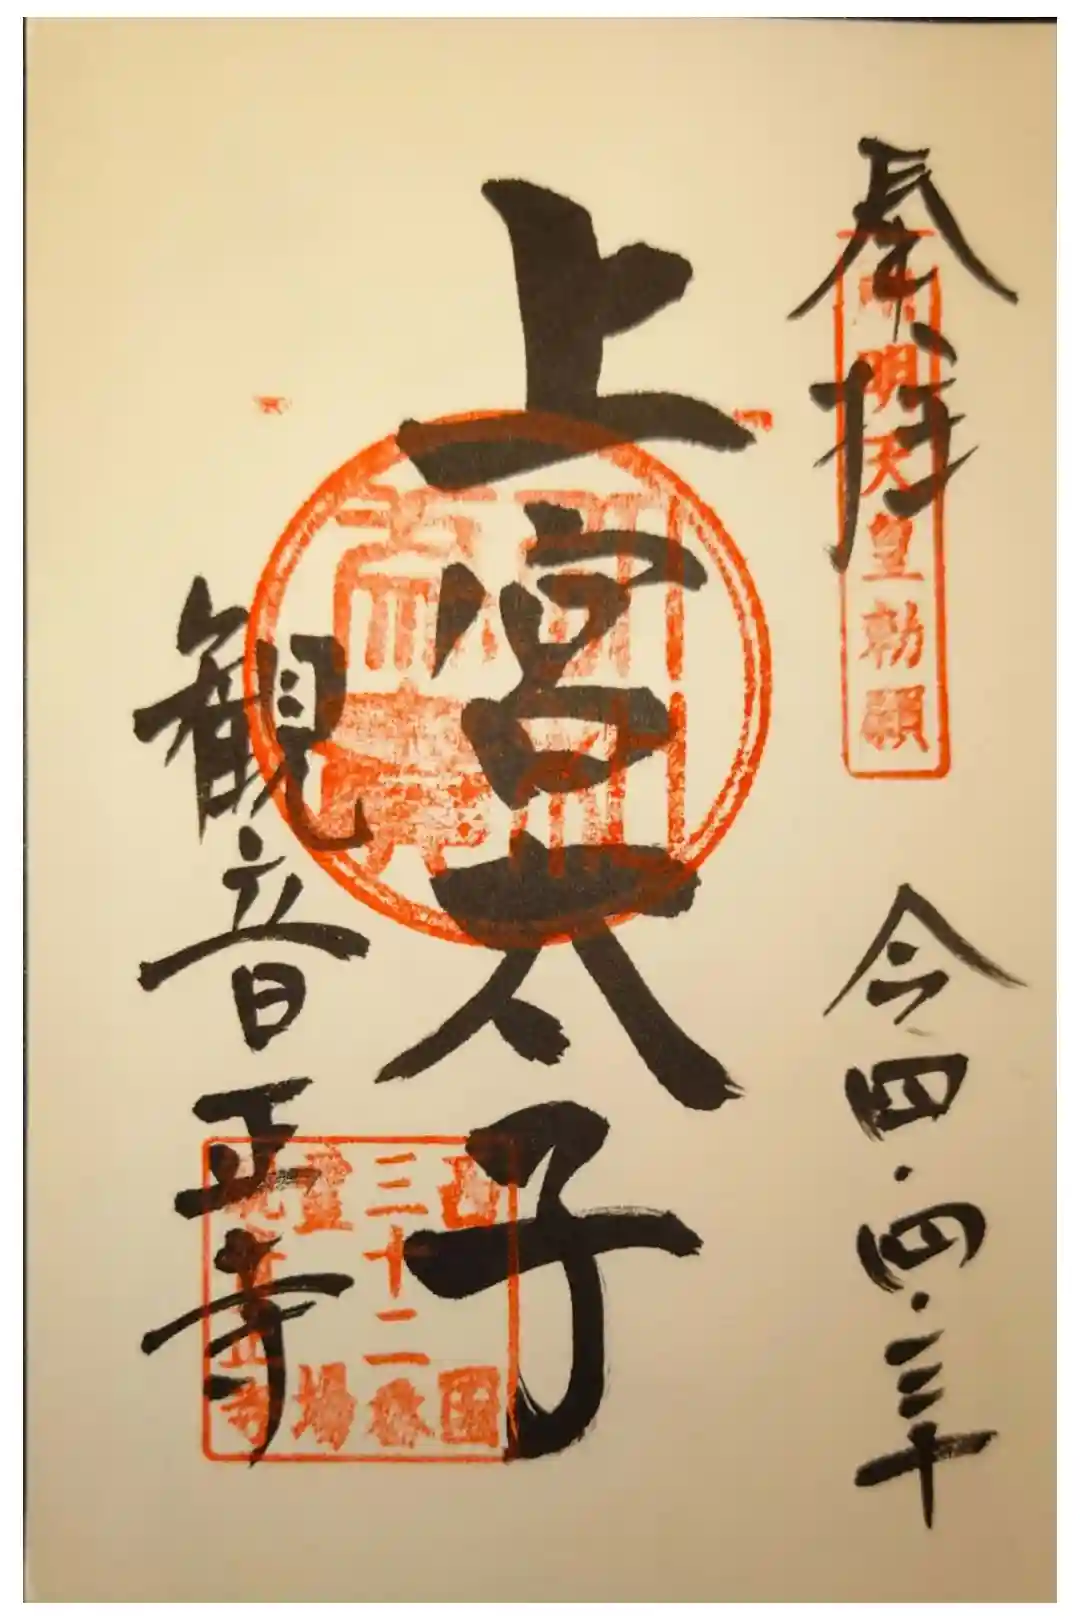 奉拝
用明天皇勅願
令四.四.三十
上宮太子
観音正寺
西国
三十二番
霊場
観音正寺